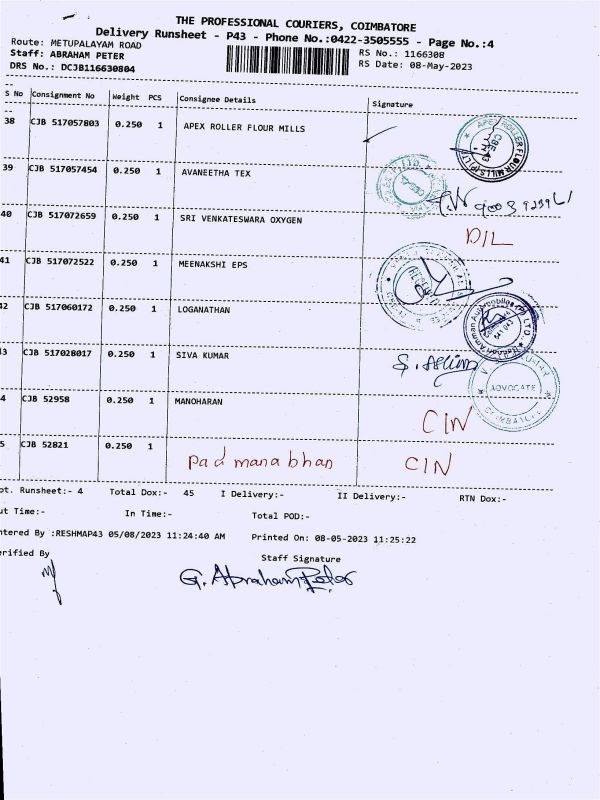 THE PROFESSIONAL COURIERS, COIMBATORE
Delivery Runsheet - P43 - Phone No.:0422-3505555 - Page No.:4
Route: METUPALAYAM ROAD
RS No.: 1166308
Staff: ABRAHAM PETER
RS Date: 08-May-2023
DRS No.: DCJB116630804
S No Consignment No Weight PCS Consignee Details Signature
38 CJB 517057803 0.250 1 APEX ROLLER FLOUR MILLS
APEX ROLLER FLOUR MILLS (P) LTD
39 CJB 517057454 0.250 1 AVANEETHA TEX
40 CJB 517072659 0.250 1 SRI VENKATESWARA OXYGEN D/L
41 CJB 517072522 0.250 1 MEENAKSHI EPS
42 CJB 517060172 0.250 1 LOGANATHAN
43 CJB 517028017 0.250 1 SIVA KUMAR
ADVOCATE
COIMBATORE
4 CJB 52958 0.250 1 MANOHARAN CIN
5 CJB 52821 0.250 1 Padmanabhan CIN
ot. Runsheet:- 4 Total Dox:- 45 I Delivery:- II Delivery:- RTN Dox:-
ut Time:- In Time:- Total POD:-
ntered By :RESHMAP43 05/08/2023 11:24:40 AM Printed On: 08-05-2023 11:25:22
erified By Staff Signature
G. Abraham Peter